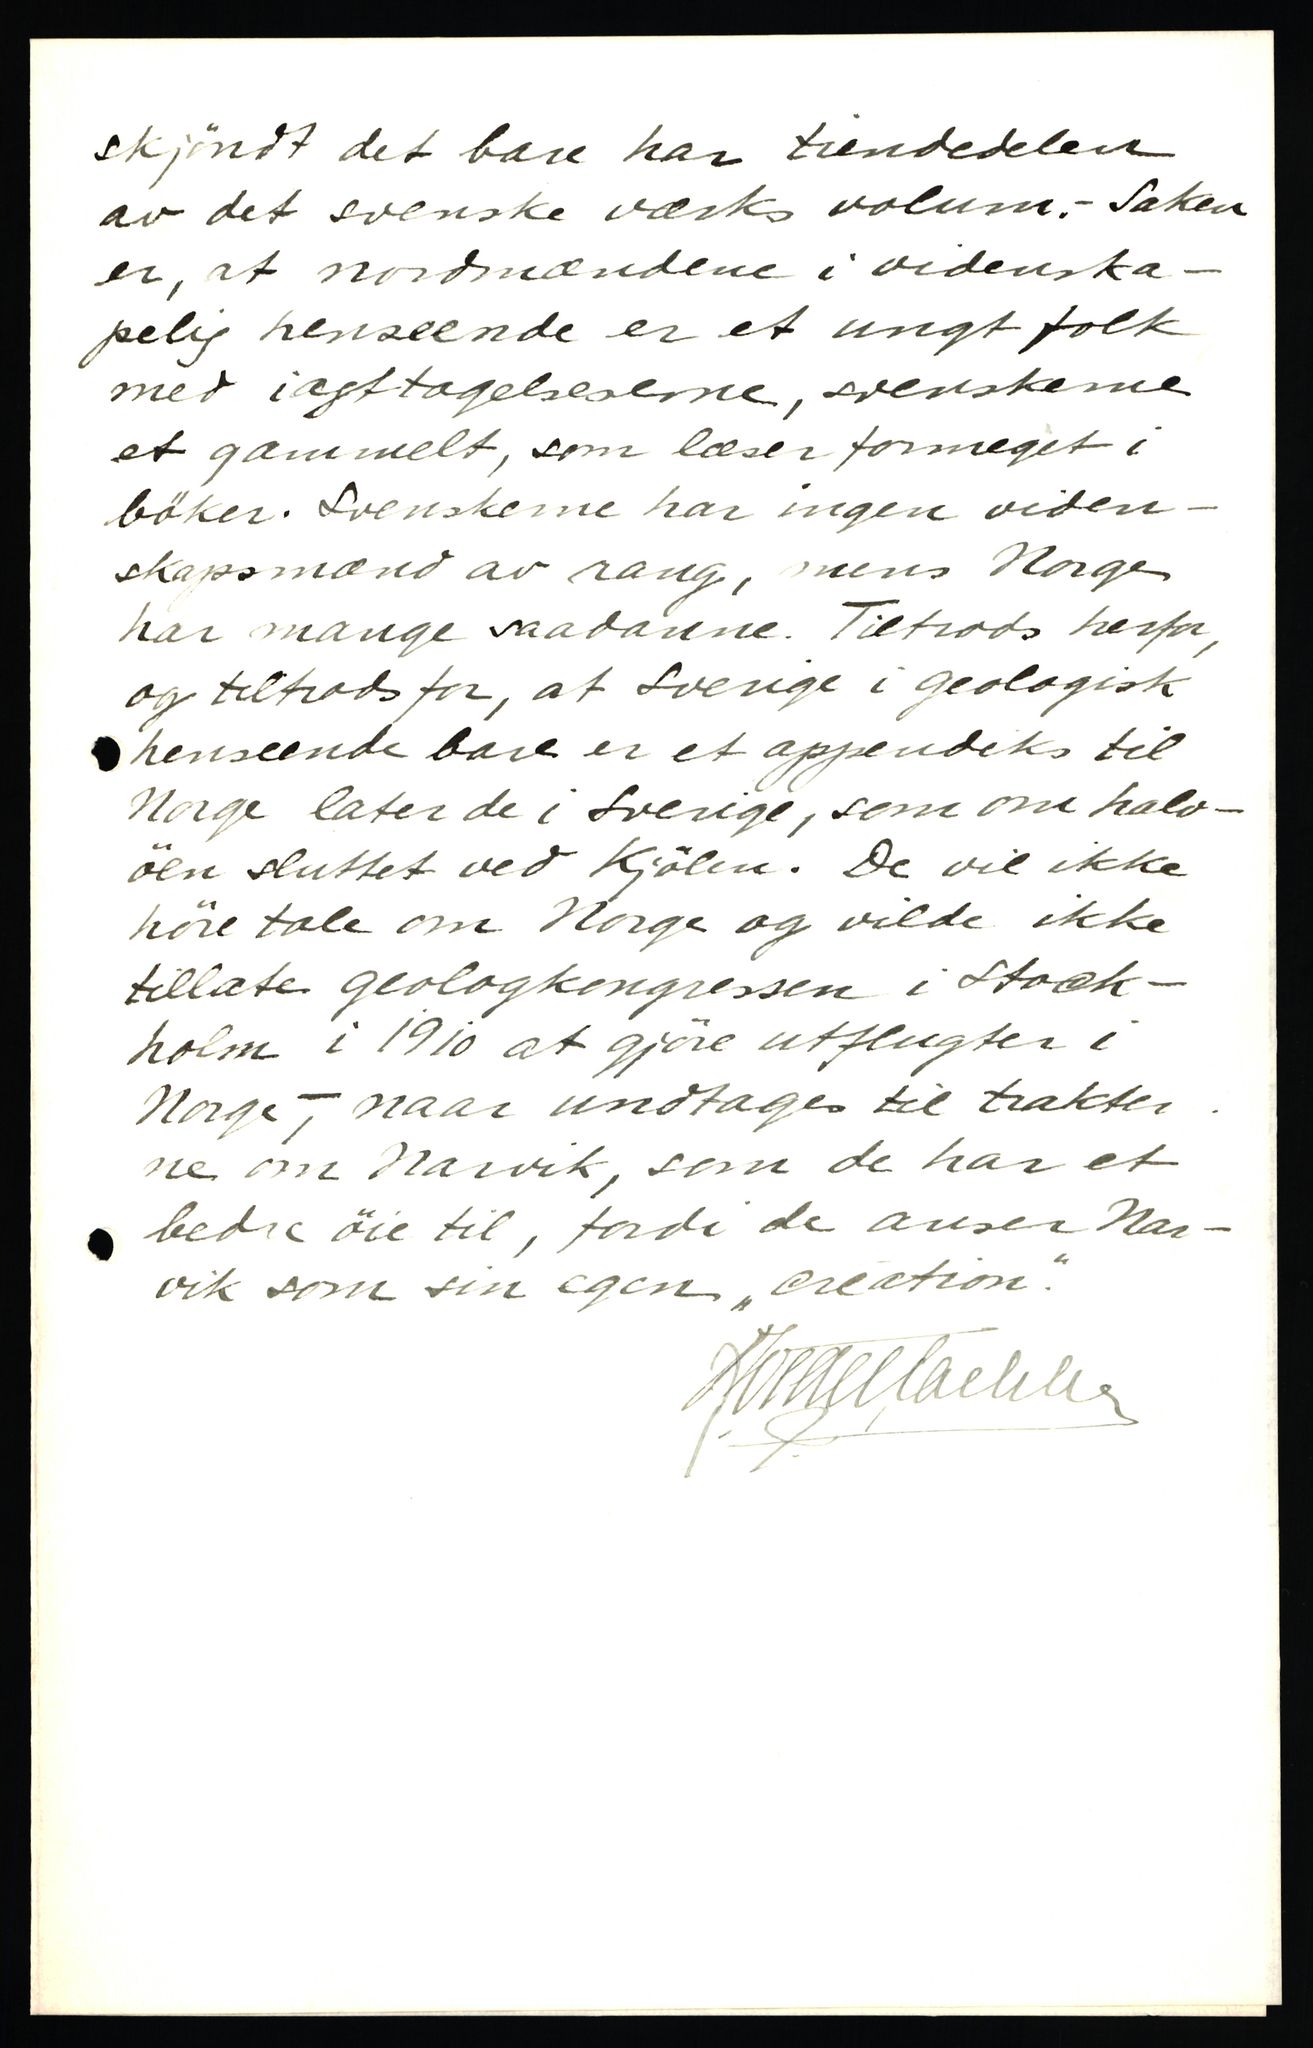 skjöndt det bare har tiendedelen
av det svenske værks volum.- Saken
er, at nordmændene i videnska-
pelig henseende er et ungt folk
med iagttagelsesevne, svenskerne
et gammelt, som læser formeget i
böker. Svenskerne har ingen viden-
skapsmænd av rang, mens Norge
har mange saadanne. Tiltrods herfor,
og tiltrods for, at Sverige i geologisk
henseende bare er et appendiks til
Norge later de i Sverige, som om halv-
öen sluttet ved Kjölen. De vil ikke
höre tale om Norge og vilde ikke
tillate geologkongressen i Stock-
holm i 1910 at gjöre utflugter i
Norge -, naar undtages til trakter
ne om Narvik, som de har et
bedre öie til, fordi de anser Nar-
vik som sin egen „creation".